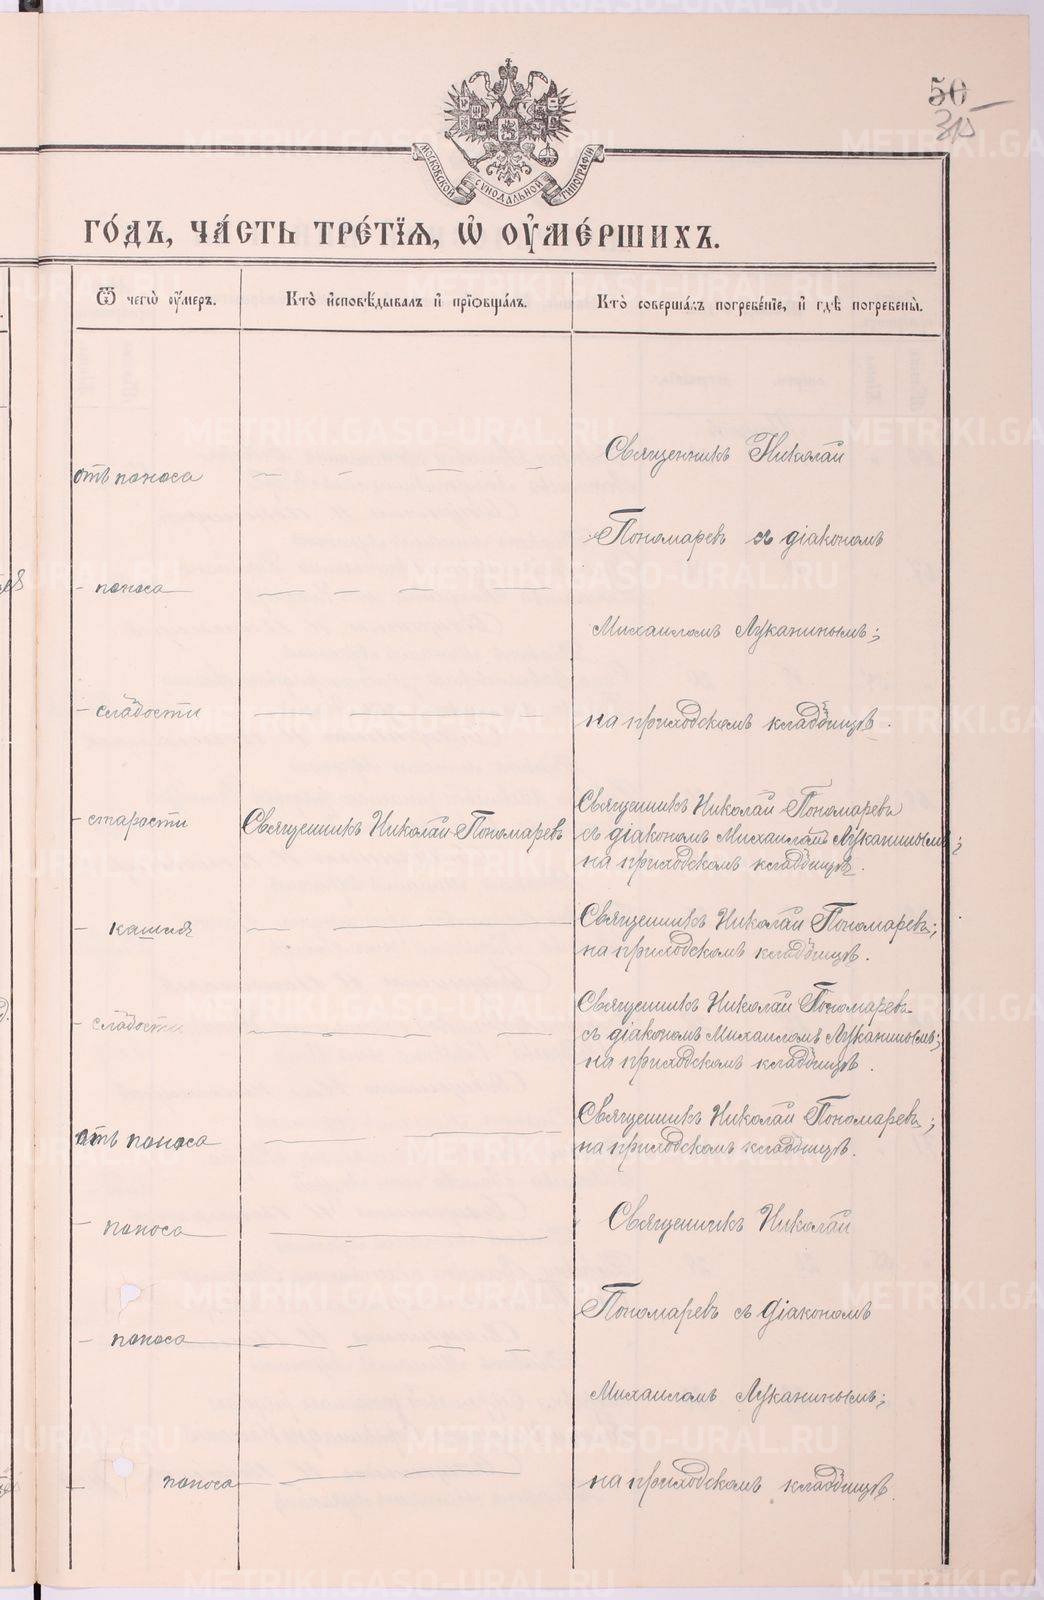 50
315
МОСКОВСКОЙ СѴНОДАЛЬНОЙ ТИПОГРАФІИ
ГО́ДЪ, ЧА́СТЬ ТРЕ́ТІѦ, Ѡ҆ ОУ҆МЕ́РШИХЪ.
Ѿ чегѡ̀ оу҆́меръ.
Кто̀ и҆сповѣ́дывалъ и҆ прїѻбща́лъ.
Кто̀ соверша́лъ погребе́нїе, и҆ гдѣ̀ погребены̀.
отъ поноса — — — —
Священникъ Николай
Пономаревъ съ діакономъ
- поноса — — — —
Михаиломъ Луканинымъ;
- слабости — — —
на приходскомъ кладбищѣ.
- старости
Священникъ Николай Пономаревъ
Священникъ Николай Пономаревъ
съ діакономъ Михаиломъ Луканинымъ;
на приходскомъ кладбищѣ.
- кашля — —
Священникъ Николай Пономаревъ;
на приходскомъ кладбищѣ.
- слабости — — — —
Священникъ Николай Пономаревъ
съ діакономъ Михаиломъ Луканинымъ;
на приходскомъ кладбищѣ.
отъ поноса — —
Священникъ Николай Пономаревъ;
на приходскомъ кладбищѣ.
- поноса — —
Священникъ Николай
Пономаревъ съ діакономъ
- поноса — — — —
Михаиломъ Луканинымъ;
- поноса — —
на приходскомъ кладбищѣ